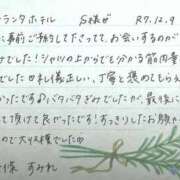 ランタホテル S様ガ R7.12.9
に事前ご予約して下さって、お会いするのが
でした！シャツの上からでも分かる筋肉量
でした 礼儀正しい、丁寧と褒めてもらえ
かったです♫バタバタぎみでしたが、最後に
って頂けて良かったです！すっきりしたお腹や
ので大リスペでしたm
様 すみれ